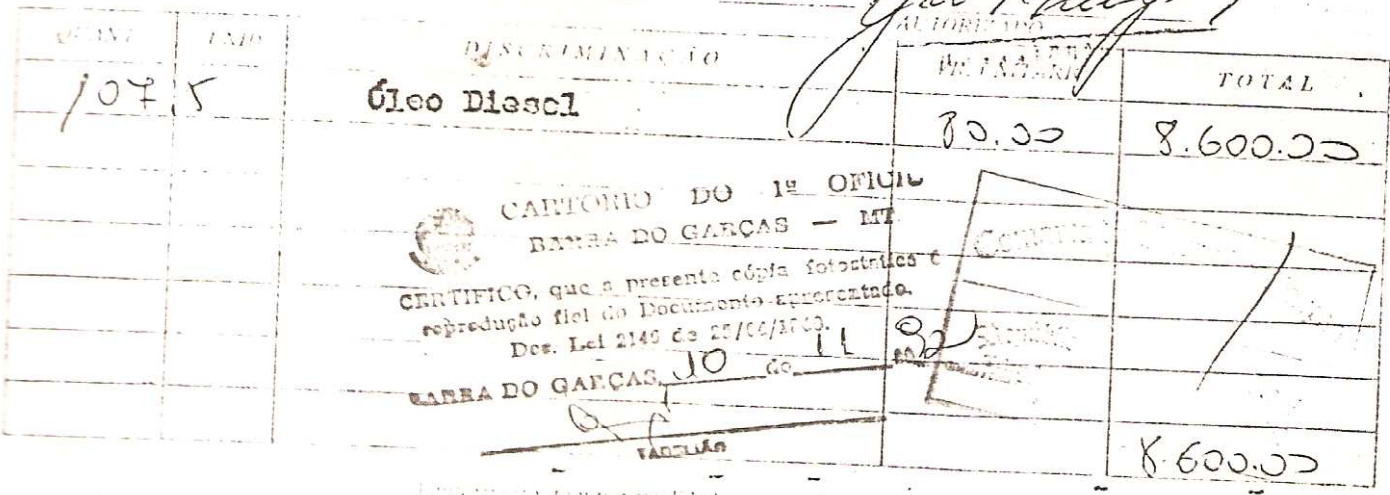 AUTORIZADO
QUANT UNID DISCRIMINAÇÃO TOTAL
107,5 Óleo Diesel 80.00 8.600.00
CARTÓRIO DO 1º OFICIO
BARRA DO GARÇAS — MT
CERTIFICO, que a presente cópia fotostatica é
reprodução fiel do Documento apresentado.
Dec. Lei 2148 de 25/04/1940.
BARRA DO GARÇAS, 10 de 11 de 82
TABELIÃO
8.600.00